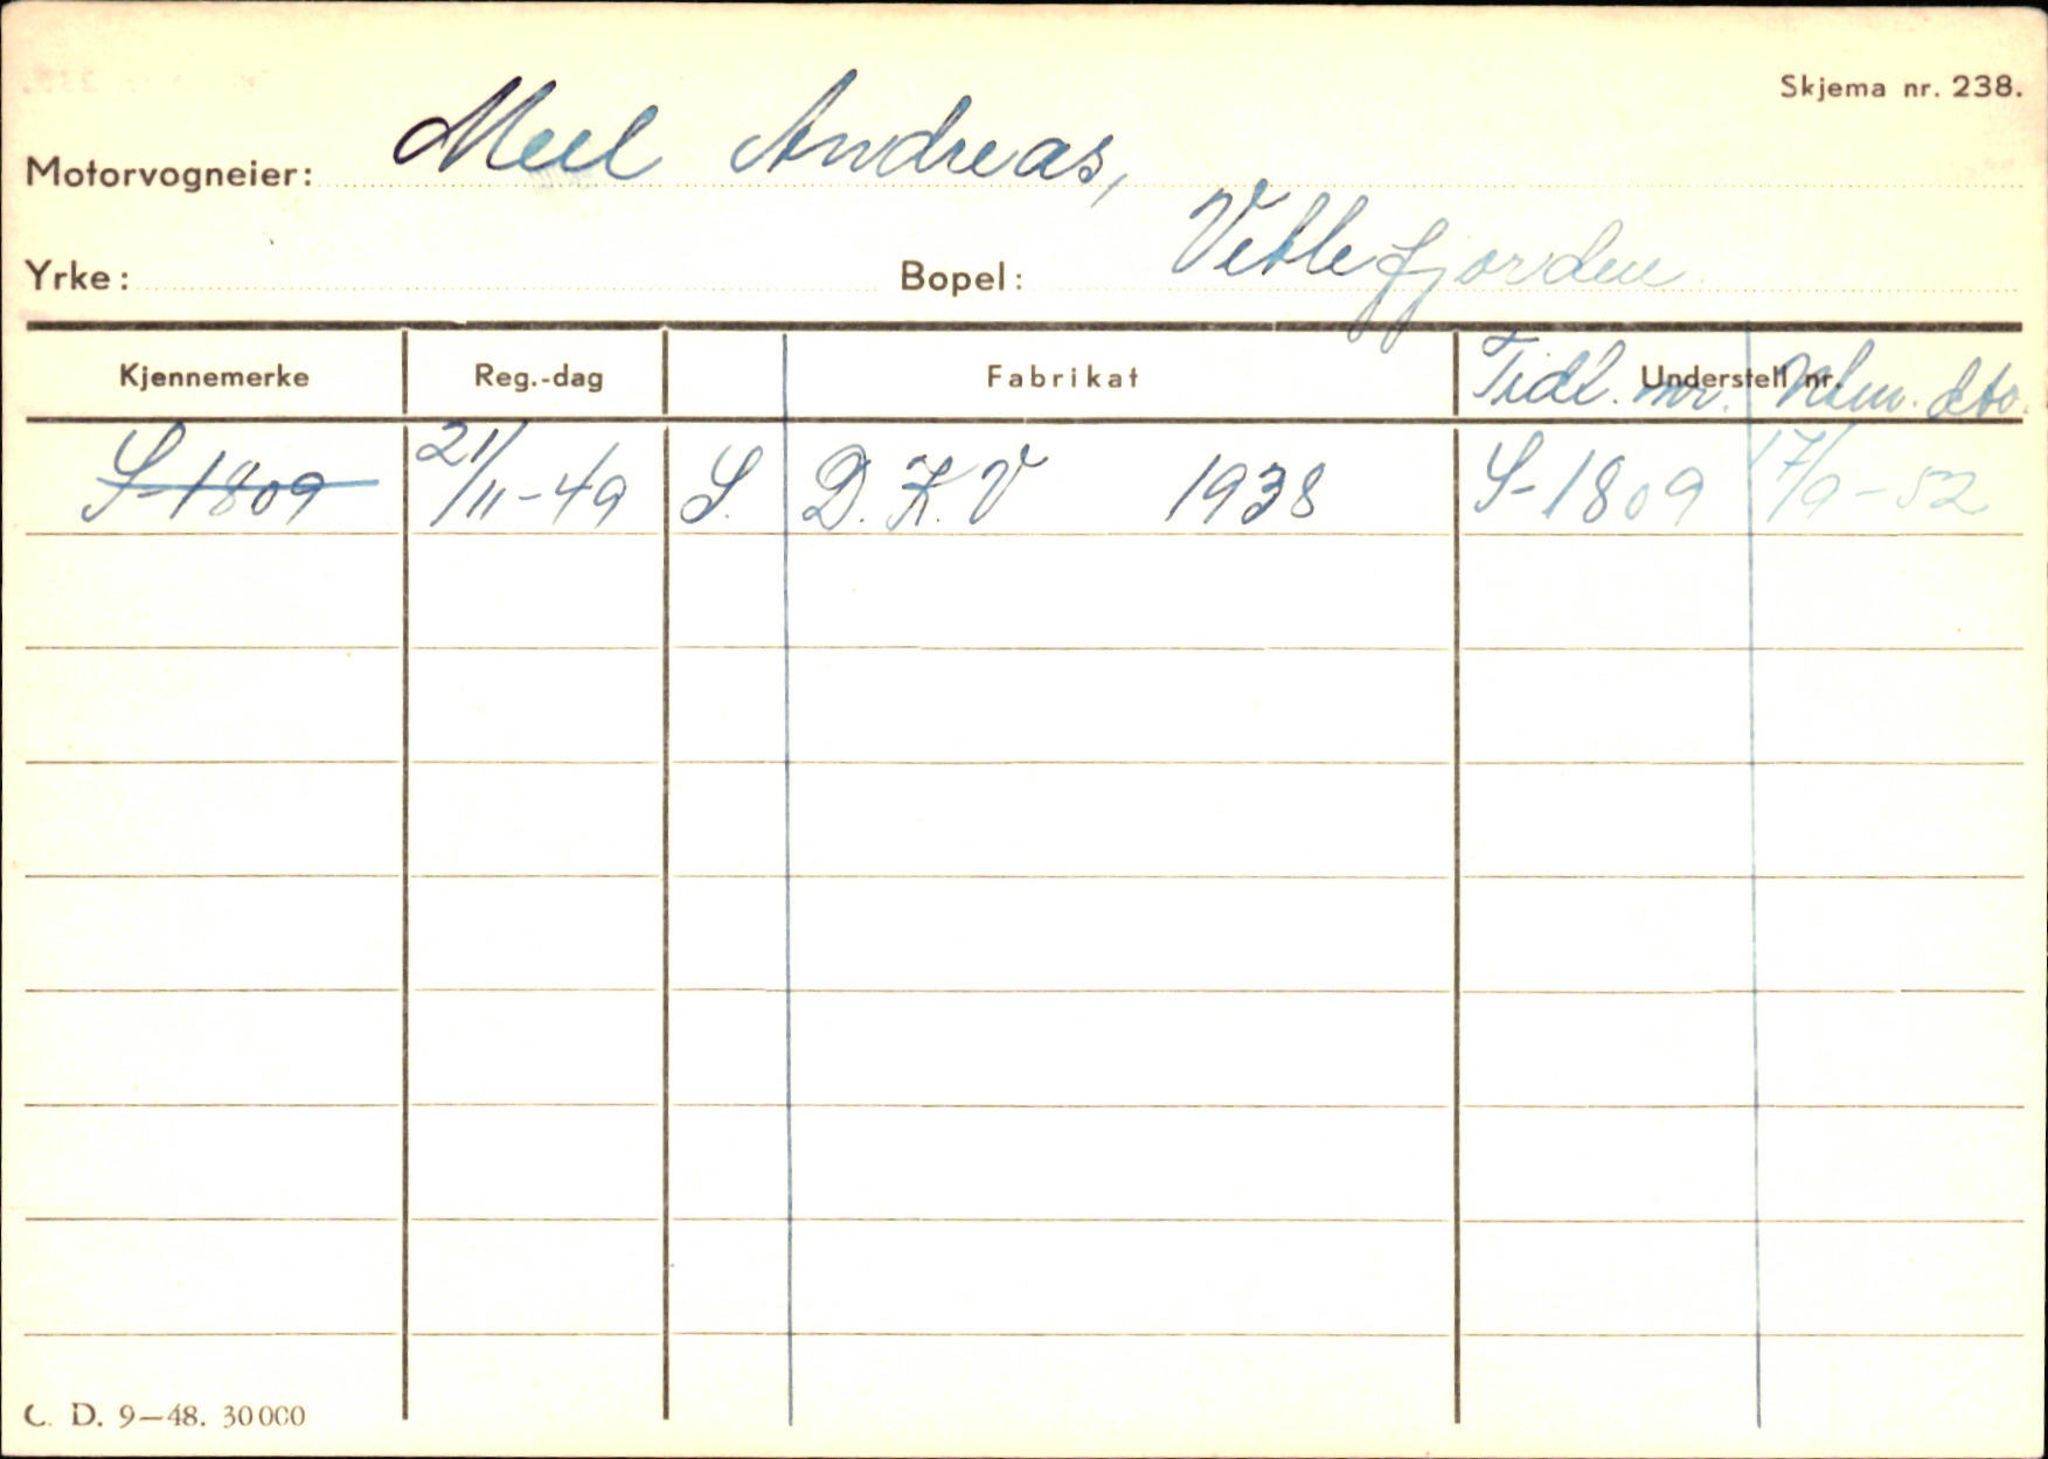 Skjema nr. 238.
Motorvogneier: Meel Andreas,
Yrke: Bopel: Vetlefjorden
Kjennemerke Reg.-dag Fabrikat Understell nr. Tidl. nr. Utm. dto.
S-1809 21/11-49 S. D.K.V 1938 S-1809 17/9-52
C. D. 9—48. 30000